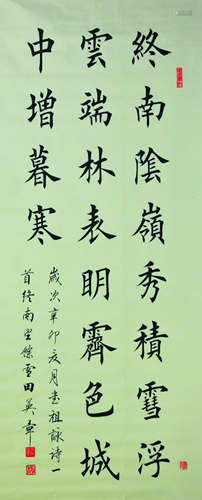 終南陰嶺秀積雪浮
雲端林表明霽色城
中增暮寒
歲次辛卯亥月書祖詠詩一
首終南望餘雪田英章